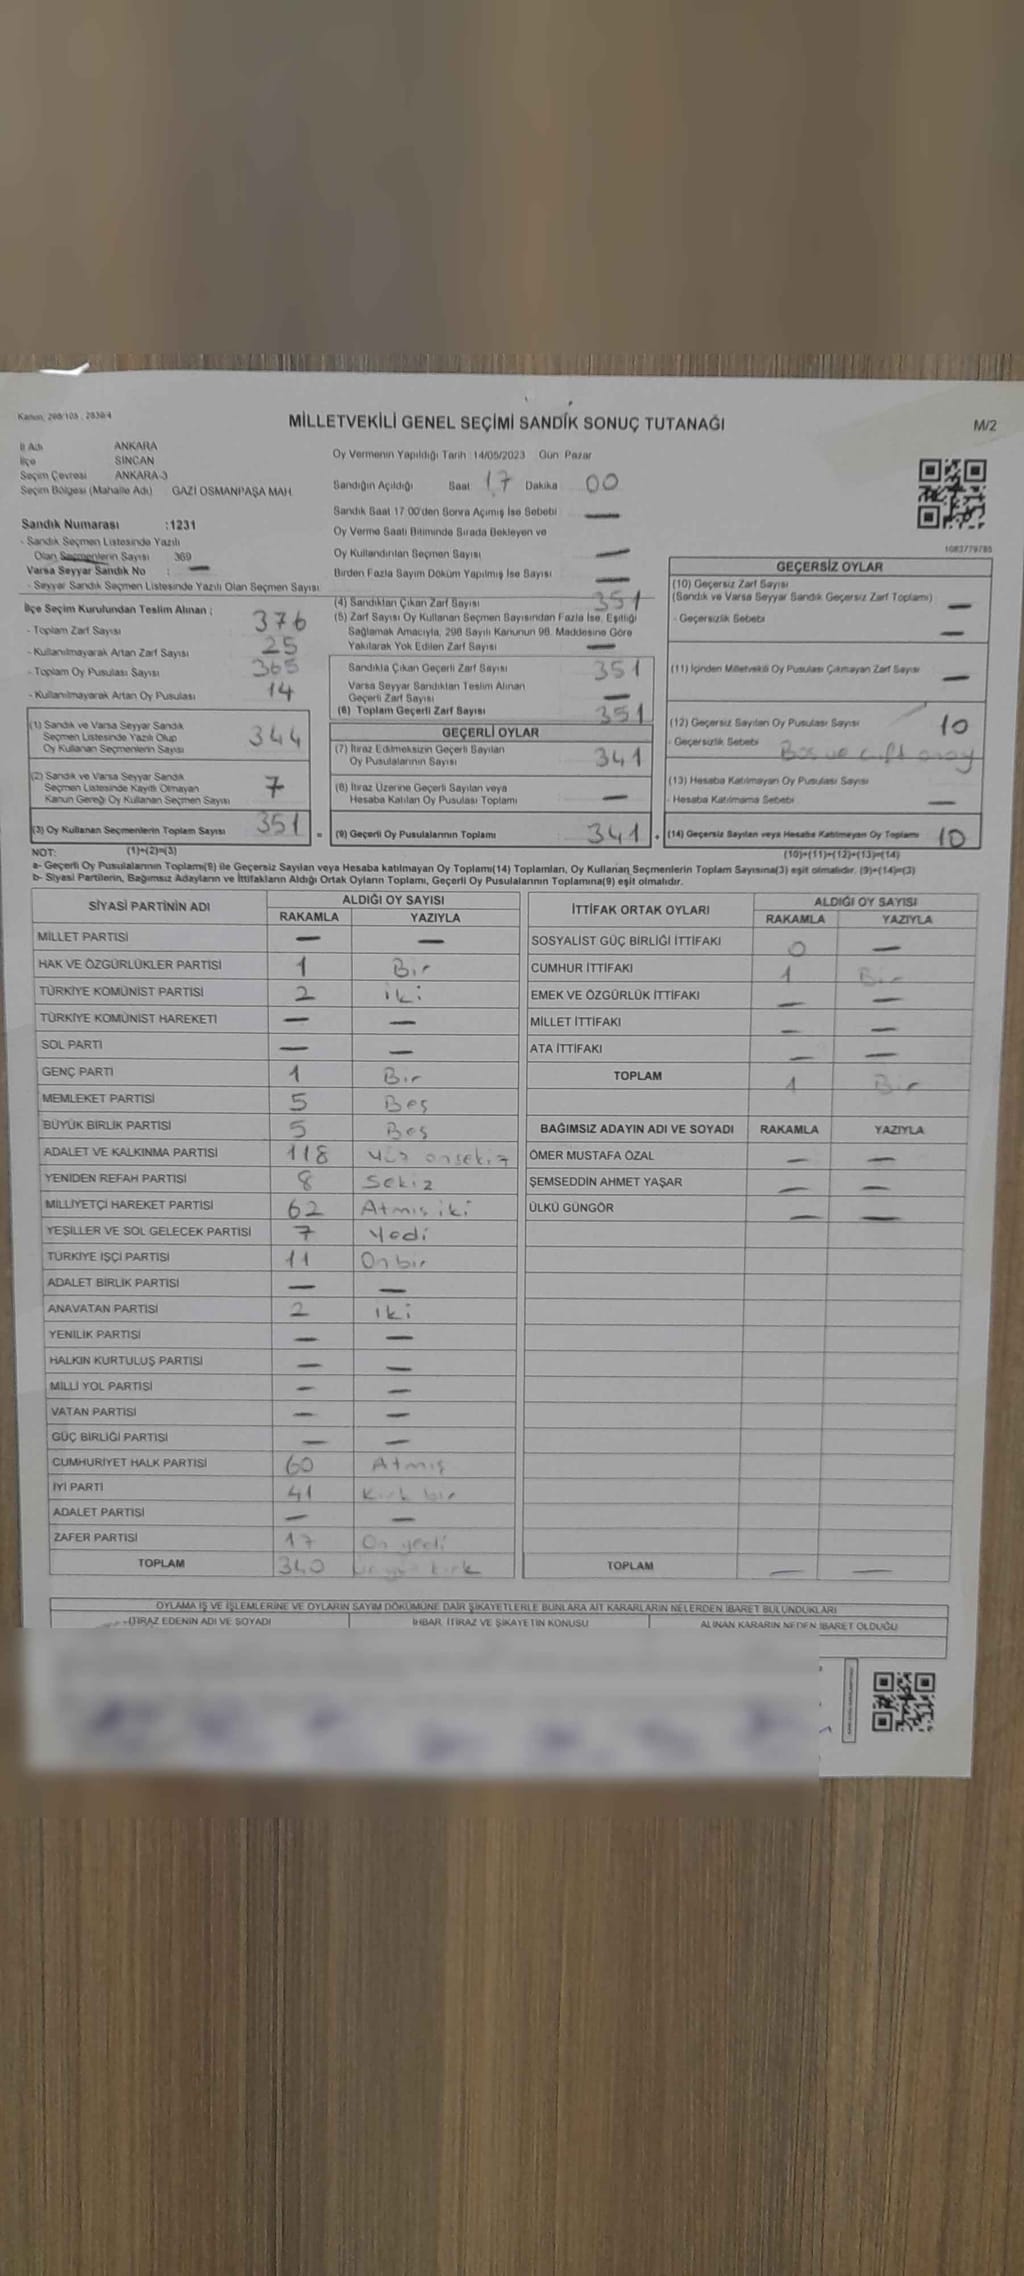 Kanun: 298/105 , 2839/4
MİLLETVEKİLİ GENEL SEÇİMİ SANDIK SONUÇ TUTANAĞI
M/2
İl Adı ANKARA
İlçe SİNCAN
Seçim Çevresi ANKARA-3
Seçim Bölgesi (Mahalle Adı) GAZİ OSMANPAŞA MAH.
Sandık Numarası :1231
- Sandık Seçmen Listesinde Yazılı
Olan Seçmenlerin Sayısı 369
Varsa Seyyar Sandık No : —
- Seyyar Sandık Seçmen Listesinde Yazılı Olan Seçmen Sayısı
Oy Vermenin Yapıldığı Tarih 14/05/2023 Gün Pazar
Sandığın Açıldığı Saat 17 Dakika 00
Sandık Saat 17:00'den Sonra Açımış İse Sebebi —
Oy Verme Saati Bitiminde Sırada Bekleyen ve
Oy Kullandırılan Seçmen Sayısı —
Birden Fazla Sayım Döküm Yapılmış İse Sayısı —
1083779785
İlçe Seçim Kurulundan Teslim Alınan ;
- Toplam Zarf Sayısı 376
- Kullanılmayarak Artan Zarf Sayısı 25
- Toplam Oy Pusulası Sayısı 365
- Kullanılmayarak Artan Oy Pusulası 14
(1) Sandık ve Varsa Seyyar Sandık
Seçmen Listesinde Yazılı Olup
Oy Kullanan Seçmenlerin Sayısı 344
(2) Sandık ve Varsa Seyyar Sandık
Seçmen Listesinde Kayıtlı Olmayan
Kanun Gereği Oy Kullanan Seçmen Sayısı 7
(3) Oy Kullanan Seçmenlerin Toplam Sayısı 351 =
(4) Sandıktan Çıkan Zarf Sayısı 351
(5) Zarf Sayısı Oy Kullanan Seçmen Sayısından Fazla İse, Eşitliği
Sağlamak Amacıyla, 298 Sayılı Kanunun 98. Maddesine Göre
Yakılarak Yok Edilen Zarf Sayısı —
Sandıkla Çıkan Geçerli Zarf Sayısı 351
Varsa Seyyar Sandıktan Teslim Alınan
Geçerli Zarf Sayısı —
(6) Toplam Geçerli Zarf Sayısı 351
GEÇERLİ OYLAR
(7) İtiraz Edilmeksizin Geçerli Sayılan
Oy Pusulalarının Sayısı 341
(8) İtiraz Üzerine Geçerli Sayılan veya
Hesaba Katılan Oy Pusulası Toplamı —
(9) Geçerli Oy Pusulalarının Toplamı 341 +
GEÇERSİZ OYLAR
(10) Geçersiz Zarf Sayısı
(Sandık ve Varsa Seyyar Sandık Geçersiz Zarf Toplamı) —
- Geçersizlik Sebebi —
(11) İçinden Milletvekili Oy Pusulası Çıkmayan Zarf Sayısı —
(12) Geçersiz Sayılan Oy Pusulası Sayısı 10
- Geçersizlik Sebebi Boş ve çift onay
(13) Hesaba Katılmayan Oy Pusulası Sayısı
- Hesaba Katılmama Sebebi —
(14) Geçersiz Sayılan veya Hesaba Katılmayan Oy Toplamı 10
NOT: (1)+(2)=(3) (10)+(11)+(12)+(13)=(14)
a- Geçerli Oy Pusulalarının Toplamı(9) ile Geçersiz Sayılan veya Hesaba katılmayan Oy Toplamı(14) Toplamları, Oy Kullanan Seçmenlerin Toplam Sayısına(3) eşit olmalıdır. (9)+(14)=(3)
b- Siyasi Partilerin, Bağımsız Adayların ve İttifakların Aldığı Ortak Oyların Toplamı, Geçerli Oy Pusulalarının Toplamına(9) eşit olmalıdır.
SİYASİ PARTİNİN ADI ALDIĞI OY SAYISI
RAKAMLA YAZIYLA
MİLLET PARTİSİ — —
HAK VE ÖZGÜRLÜKLER PARTİSİ 1 Bir
TÜRKİYE KOMÜNİST PARTİSİ 2 iki
TÜRKİYE KOMÜNİST HAREKETİ — —
SOL PARTİ — —
GENÇ PARTİ 1 Bir
MEMLEKET PARTİSİ 5 Beş
BÜYÜK BİRLİK PARTİSİ 5 Beş
ADALET VE KALKINMA PARTİSİ 118 Yüz onsekiz
YENİDEN REFAH PARTİSİ 8 Sekiz
MİLLİYETÇİ HAREKET PARTİSİ 62 Atmış iki
YEŞİLLER VE SOL GELECEK PARTİSİ 7 Yedi
TÜRKİYE İŞÇİ PARTİSİ 11 Onbir
ADALET BİRLİK PARTİSİ — —
ANAVATAN PARTİSİ 2 iki
YENİLİK PARTİSİ — —
HALKIN KURTULUŞ PARTİSİ — —
MİLLİ YOL PARTİSİ — —
VATAN PARTİSİ — —
GÜÇ BİRLİĞİ PARTİSİ — —
CUMHURİYET HALK PARTİSİ 60 Atmış
İYİ PARTİ 41 Kırk bir
ADALET PARTİSİ — —
ZAFER PARTİSİ 17 On yedi
TOPLAM 340 kırk
İTTİFAK ORTAK OYLARI ALDIĞI OY SAYISI
RAKAMLA YAZIYLA
SOSYALİST GÜÇ BİRLİĞİ İTTİFAKI 0 —
CUMHUR İTTİFAKI 1 Bir
EMEK VE ÖZGÜRLÜK İTTİFAKI — —
MİLLET İTTİFAKI — —
ATA İTTİFAKI — —
TOPLAM 1 Bir
BAĞIMSIZ ADAYIN ADI VE SOYADI RAKAMLA YAZIYLA
ÖMER MUSTAFA ÖZAL — —
ŞEMSEDDİN AHMET YAŞAR — —
ÜLKÜ GÜNGÖR — —
TOPLAM — —
OYLAMA İŞ VE İŞLEMLERİNE VE OYLARIN SAYIM DÖKÜMÜNE DAİR ŞİKAYETLERLE BUNLARA AİT KARARLARIN NELERDEN İBARET BULUNDUKLARI
İTİRAZ EDENİN ADI VE SOYADI İHBAR, İTİRAZ VE ŞİKAYETİN KONUSU ALINAN KARARIN NEDEN İBARET OLDUĞU